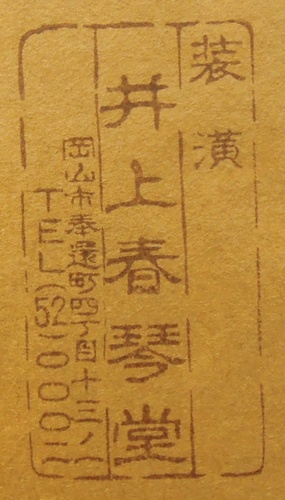 装潢
井上春琴堂
岡山市奉還町四丁目十三ノ一
TEL(52)一〇〇〇二